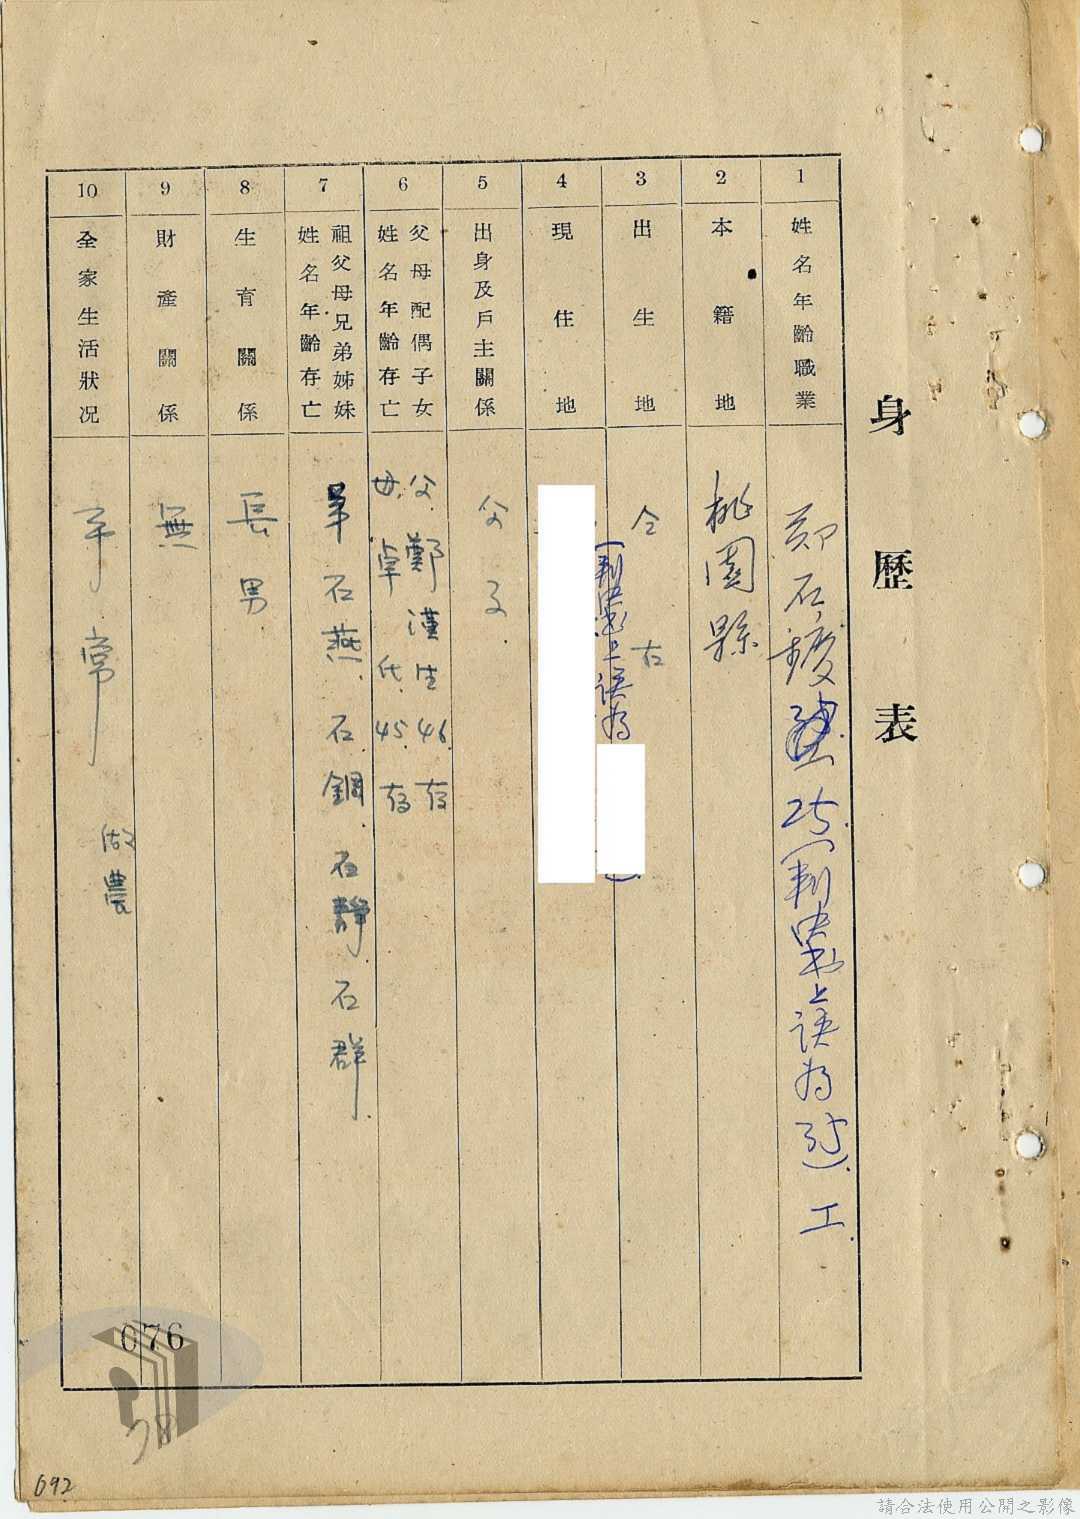 身歷表
1
姓名年齡職業
鄭石
25.(判決書上誤為
). 工.
2
本籍地
桃園縣
3
出生地
仝右
4
現住地
(判決書上誤為
).
5
出身及戶主關係
父子.
6
父母配偶子女
姓名年齡存亡
父.鄭漢生46.存
母.卓代.45.存
7
祖父母兄弟姊妹
姓名年齡存亡
石燕.石鋼.石靜.石群.
8
生育關係
長男
9
財產關係
無
10
全家生活狀況
平常
做農
076
78
692
請合法使用公開之影像